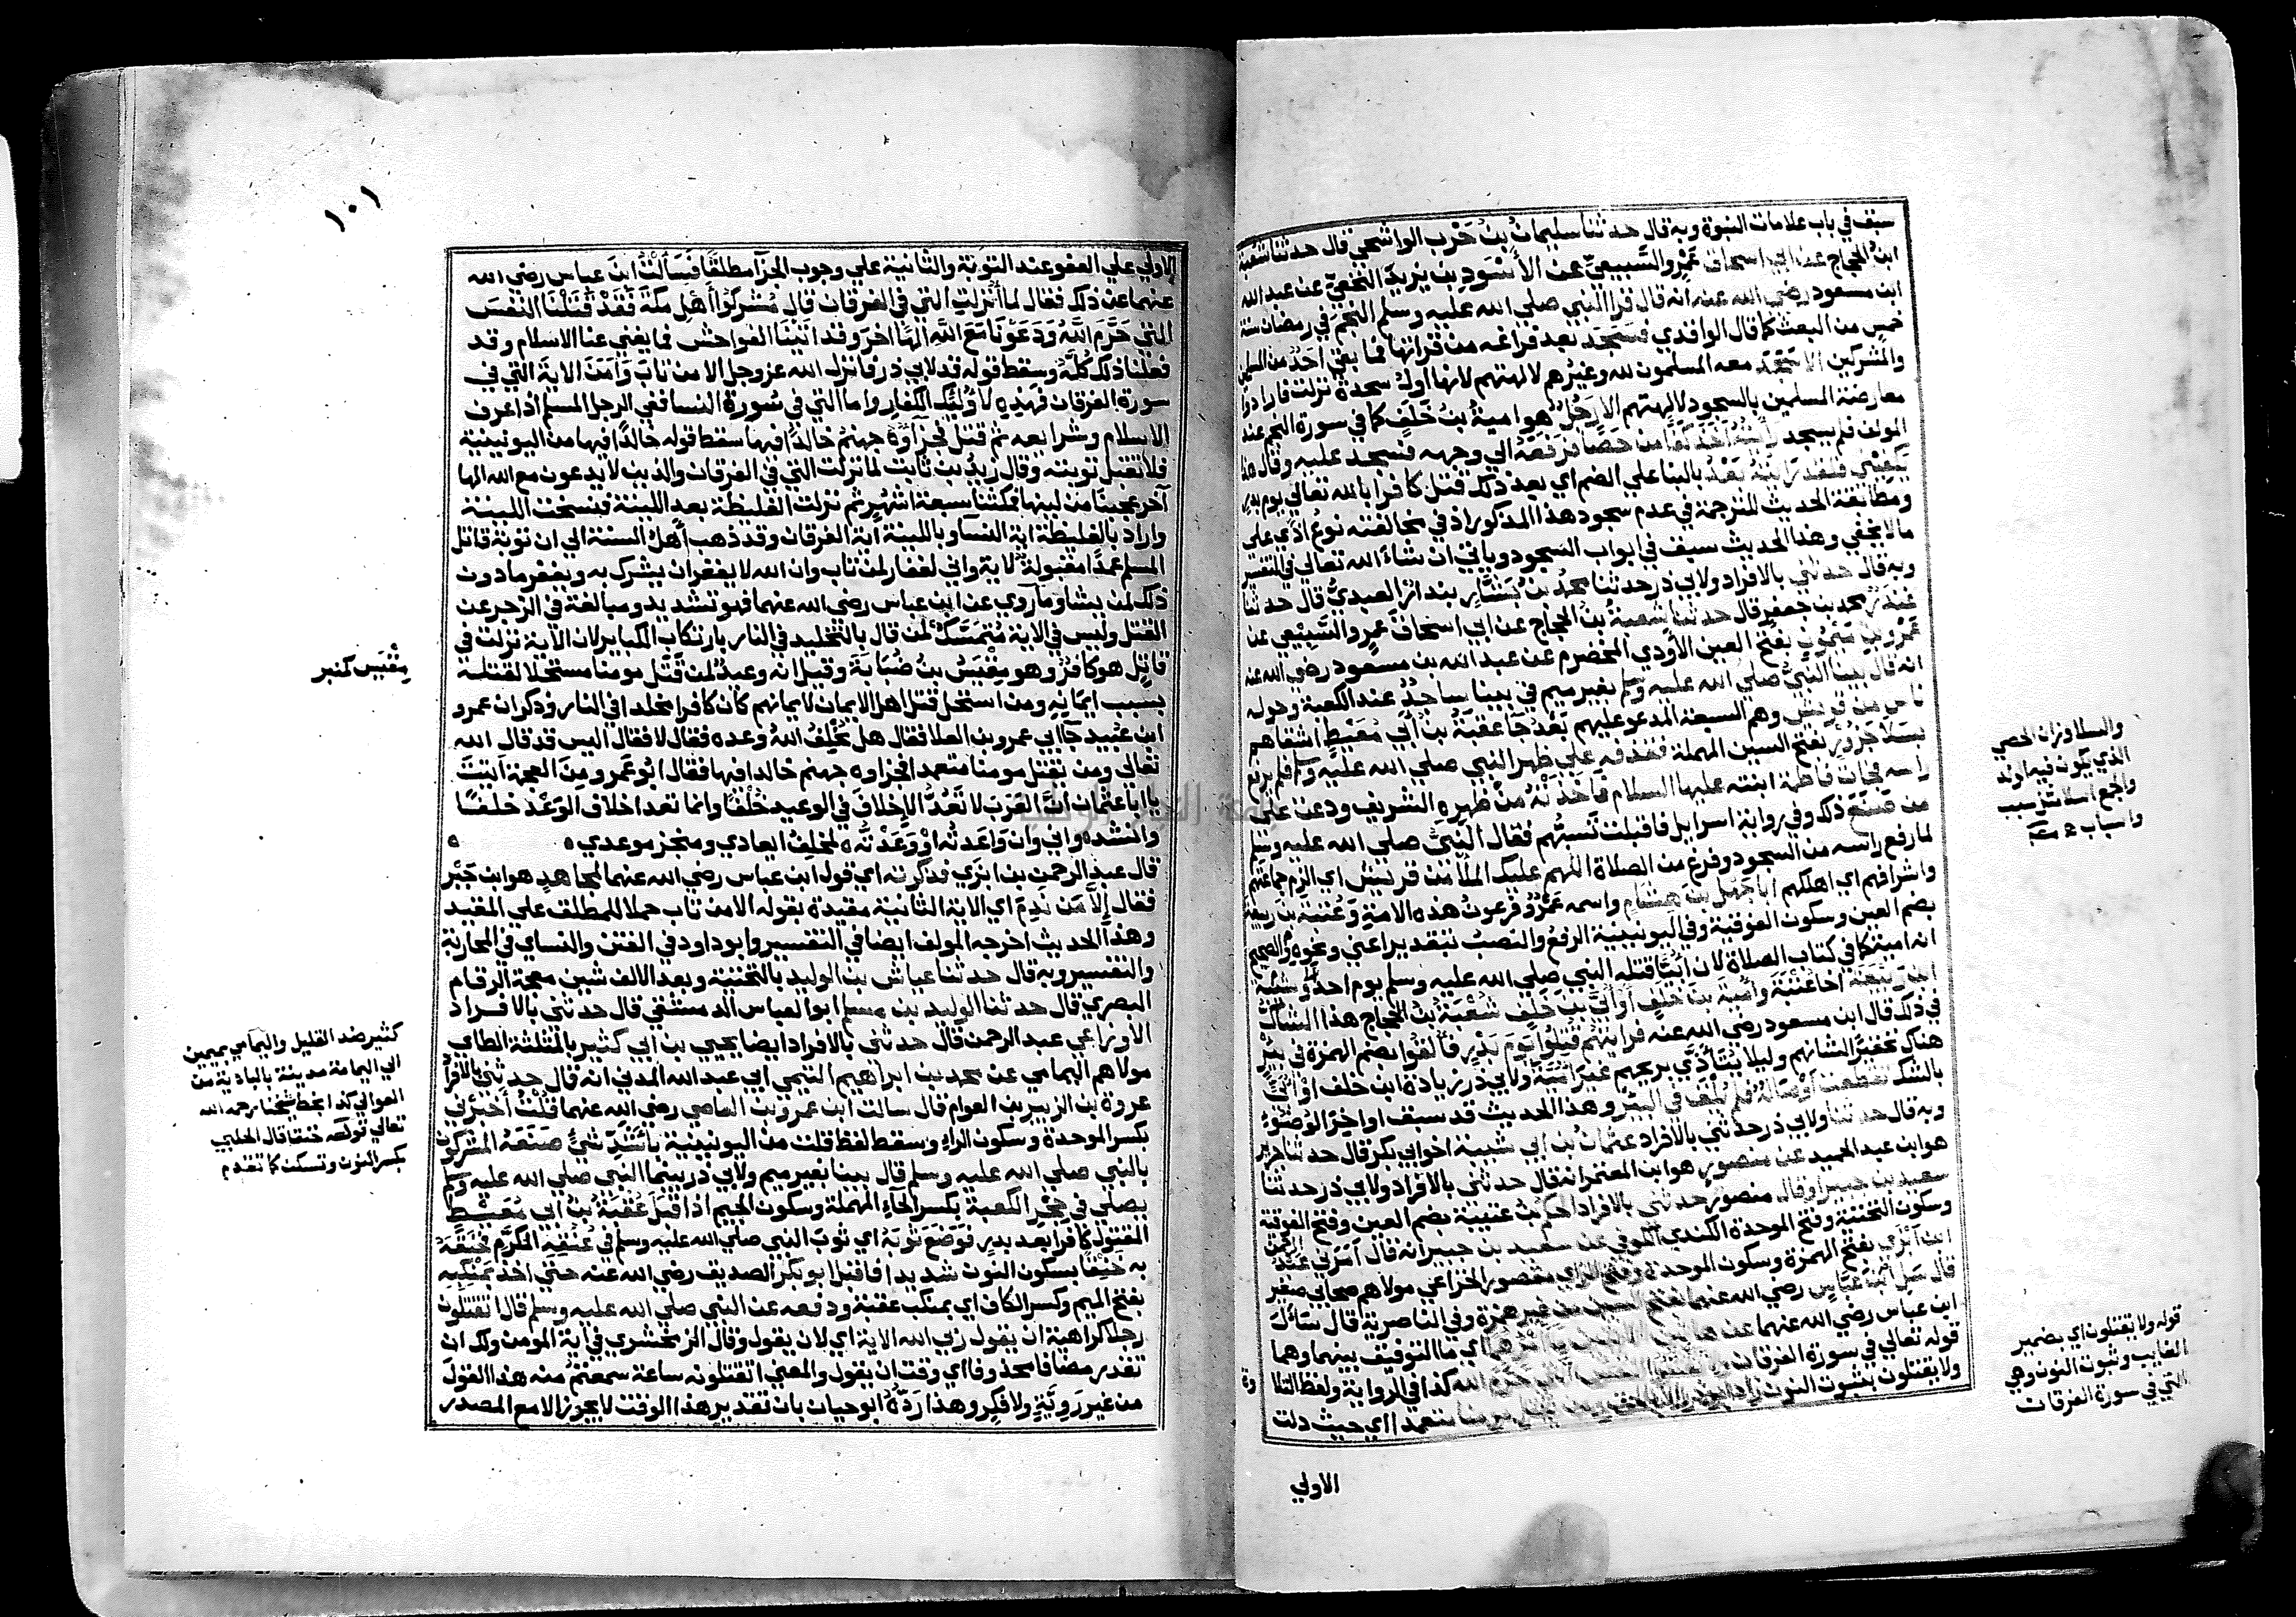 سبق في باب علامات النبوة وبه قال حدثنا سليمان بن حرب الواشحي قال حدثنا شعبة
ابن الحجاج عن ابي اسحاق عمرو السبيعي عن الاسود بن يزيد النخعي عن عبد الله
ابن مسعود رضي الله عنه انه قال قرا النبي صلي الله عليه وسلم النجم في رمضان سنة
خمس من البعث كما قال الواقدي فسجد بعد فراغه من قراتها فما بقي احد من المسلمين
والمشركين الا سجد معه المسلمون لله وغيرهم لالهتهم لانها اول سجدة نزلت فارادوا
معارضة المسلمين بالسجود لالهتهم الا رجل هو امية بن خلف كما في سورة النجم عند
المولف فلم يسجد رايته اخذ كفا من حصا فرفعه الي وجهه فسجد عليه وقال هذا
يكفيني فلقد رايته بعد بالبنا علي الضم اي بعد ذلك قتل كافرا بالله تعالي يوم بدر
ومطابقة الحديث للترجمة في عدم سجود هذا المذكور اذ في مخالفته نوع اذي علي
ما لا يخفي وهذا الحديث سبق في ابواب السجود وياتي ان شاء الله تعالي في التفسير
وبه قال حدثني بالافراد ولابي ذر حدثنا محمد بن بشار بندار العبدي قال حدثنا
غندر محمد بن جعفر قال حدثنا شعبة بن الحجاج عن ابي اسحاق عمرو السبيعي عن
عمرو بن ميمون بفتح العين الاودي المخضرم عن عبد الله بن مسعود رضي الله عنه
انه قال بينا النبي صلي الله عليه وسلم بغير ميم في بينا ساجد عند الكعبة وحوله
ناس من قريش وهم السبعة المدعو عليهم بعد جا عقبة بن ابي معيط اشقاهم
بسلا جزور بفتح السين المهملة فقذفه علي ظهر النبي صلي الله عليه وسلم فلم يرفع
راسه فجات فاطمة ابنته عليها السلام فاخذته من ظهره الشريف ودعت علي
من صنع ذلك وفي رواية اسرايل فاقبلت تسبهم فقال النبي صلي الله عليه وسلم
لما رفع راسه من السجود وفرغ من الصلاة اللهم عليك الملا من قريش اي الزم جماعتهم
واشرافهم اي اهلكهم ابا جهل بن هشام واسمه عمرو فرعون هذه الامة وعتبة بن ربيعة
بضم العين وسكون الفوقية وفي اليونينية الرفع والنصب بتقدير اعني ونحوه والصحيح
انه امية كما في كتاب الصلاة لان ابيا قتله النبي صلي الله عليه وسلم يوم احد وشيبة
ابن ربيعة اخا عتبة وامية بن خلف او ابي بن خلف شعبة بن الحجاج هذا الشاك
في ذلك قال ابن مسعود رضي الله عنه فرايتهم قتلوا يوم بدر فالقوا بضم الهمزة في بير
هناك تحقيرا لشانهم وليلا يتاذي بريحهم غير امية ولابي ذر زيادة ابن خلف او ابي
بالشك تقطعت اوصاله فلم يلق في البير وهذا الحديث قد سبق اواخر الوضوء
وبه قال حدثنا ولابي ذر حدثني بالافراد عثمان بن ابي شيبة اخو ابي بكر قال حدثنا جرير
هو ابن عبد الحميد عن منصور هو ابن المعتمر انه قال حدثني بالافراد ولابي ذر حدثنا
سعيد بن جبير او قال منصور حدثني بالافراد الحكم بن عتيبة بضم العين وفتح الفوقية
وسكون التحتية وفتح الموحدة الكندي الكوفي عن سعيد بن جبير انه قال امرني عبد الرحمن
ابن ابزي بفتح الهمزة وسكون الموحدة وفتح الزاي مقصور الخزاعي مولاهم صحابي صغير
قال سل ابن عباس رضي الله عنهما بفتح السين من غير همزة وفي الناصرية قال سالت
ابن عباس رضي الله عنهما عن هاتين الايتين ما امرهما اي ما التوفيق بينهما وهما
قوله تعالي في سورة الفرقان ولا تقتلوا النفس التي حرم الله كذا في الرواية ولفظ التلاوة
ولا يقتلون بثبوت النون ومن يقتل مومنا متعمدا اي حيث دلت
الاولي
والسلا وزان الحصي
الذي يكون فيه الولد
والجمع اسلا مثل سبب
واسباب
قوله ولا يقتلون اي بضمير
الغايب وثبوت النون وهي
التي في سورة الفرقان
١٠١
الاولي علي العفو عند التوبة والثانية علي وجوب الجزا مطلقا فسالت ابن عباس رضي الله
عنهما عن ذلك فقال لما انزلت التي في الفرقان قال مشركوا اهل مكة فقد قتلنا النفس
التي حرم الله ودعونا مع الله الها اخر وقد اتينا الفواحش فما يغني عنا الاسلام وقد
فعلنا ذلك كله وسقط قوله قد لابي ذر فانزل الله عز وجل الا من تاب وآمن الاية التي في
سورة الفرقان فهذه لاوليك الكفار واما التي في سورة النسا ففي الرجل المسلم اذا عرف
الاسلام وشرايعه ثم قتل فجزاوه جهنم خالدا فيها سقط قوله خالدا فيها من اليونينية
فلا تقبل توبته وقال زيد بن ثابت لما نزلت التي في الفرقان والذين لا يدعون مع الله الها
آخر عجبنا من لينها فمكثنا سبعة اشهر ثم نزلت الغليظة بعد اللينة فنسخت اللينة
واراد بالغليظة اية النسآ وباللينة اية الفرقان وقد ذهب اهل السنة الي ان توبة قاتل
المسلم عمدا مقبولة لاية واني لغفار لمن تاب وان الله لا يغفر ان يشرك به ويغفر ما دون
ذلك لمن يشا وما روي عن ابن عباس رضي الله عنهما فهو تشديد ومبالغة في الزجر عن
القتل وليس في الاية متمسك لمن قال بالتخليد في النار بارتكاب الكباير لان الاية نزلت في
قاتل هو كافر وهو مقيس بن ضبابة وقيل انه وعيد لمن قتل مومنا مستحلا لقتله
بسبب ايمانه ومن استحل قتل اهل الايمان لايمانهم كان كافرا مخلدا في النار وذكر ان عمرو
ابن عبيد جآ ابي عمرو بن العلا فقال هل يخلف الله وعده فقال لا فقال اليس قد قال الله
تعالي ومن يقتل مومنا متعمدا فجزاوه جهنم خالدا فيها فقال ابو عمرو من العجمة اتيت
يا ابا عثمان ان العرب لا تعد الاخلاف في الوعيد خلفا وانما تعد اخلاف الوعد خلفا
وانشد واني وان واعدته او وعدته لمخلف ايعادي ومنجز موعدي
قال عبد الرحمن بن ابزي فذكرته اي قول ابن عباس رضي الله عنهما لمجاهد هو ابن جبر
فقال الا من ندم اي الاية الثانية مقيدة بقوله الا من تاب حملا للمطلق علي المقيد
وهذا الحديث اخرجه المولف ايضا في التفسير وابو داود في الفتن والنساي في المحاربة
والتفسير وبه قال حدثنا عياش بن الوليد بالتحتية وبعد الالف شين معجمة الرقام
البصري قال حدثنا الوليد بن مسلم ابو العباس الدمشقي قال حدثني بالافراد
الاوزاعي عبد الرحمن قال حدثني بالافراد ايضا يحيي بن ابي كثير بالمثلثة الطاي
مولاهم اليمامي عن محمد بن ابراهيم التيمي ابي عبد الله المدني انه قال حدثني بالافراد
عروة بن الزبير بن العوام قال سالت ابن عمرو بن العاصي رضي الله عنهما قلت اخبرني
بكسر الموحدة وسكون الراء وسقط لفظ قلت من اليونينية باشد شي صنعه المشركون
بالنبي صلي الله عليه وسلم قال بينا بغير ميم ولابي ذر بينما النبي صلي الله عليه وسلم
يصلي في حجر الكعبة بكسر الحاء المهملة وسكون الجيم اذ اقبل عقبة بن ابي معيط
المقتول كافرا بعد بدر فوضع ثوبه اي ثوب النبي صلي الله عليه وسلم في عنقه المكرم فخنقه
به خنقا بسكون النون شديدا فاقبل ابو بكر الصديق رضي الله عنه حتي اخذ بمنكبه
بفتح الميم وكسر الكاف اي بمنكب عقبة ودفعه عن النبي صلي الله عليه وسلم قال اتقتلون
رجلا كراهية ان يقول ربي الله الاية اي لان يقول وقال الزمخشري في اية المومن ولك ان
تقدر مضافا محذوفا اي وقت ان يقول والمعني اتقتلونه ساعة سمعتم منه هذا القول
من غير روية ولا فكر وهذا رده ابو حيان بان تقدير هذا الوقت لا يجوز الا مع المصدر
مقيس كمنبر
كثير ضد القليل واليمامي بميمين
الي اليمامة مدينة بالبادية من
العوالي كذا بخط شيخنا رحمه الله
تعالي قوله خنقا قال الحلبي
بكسر النون وتسكن كما تقدم